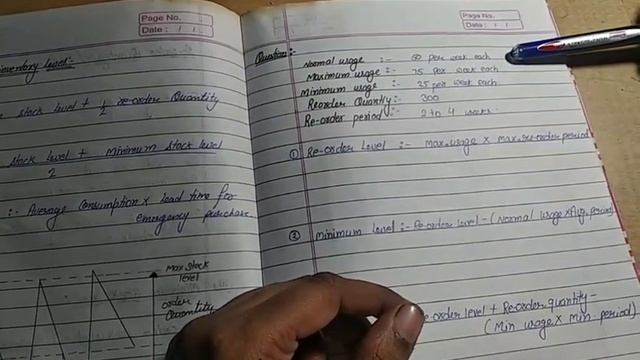 Page No.
Date : / /
inventory level:-
stock level + 1/2 re-order Quantity
stock level + Minimum stock level
2
:- Average Consumption x Lead time for
emergency purchase
Max stock
level
order
Quantity
Page No.
Date : / /
Question:-
Normal usage :- 50 per week each
Maximum usage :- 75 per week each
Minimum usage :- 25 per week each
Reorder Quantity :- 300
Re-order period :- 2 to 4 weeks
① Re-order Level :- Max.usage x Max.re-order period
② Minimum Level :- Re-order level - (Normal usage x Avg. period)
-order level + Re-order quantity -
(Min usage x Min. period)